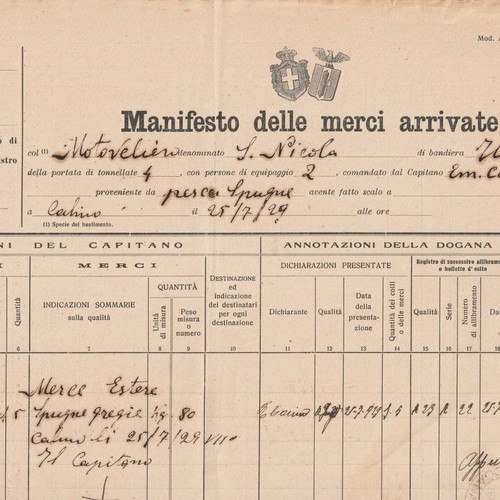 Mod. A
Manifesto delle merci arrivate
col (1) Motoveliero denominato S. Nicola di bandiera
della portata di tonnellate 4, con persone di equipaggio 2, comandato dal Capitano Em.
proveniente da pesca Spugne avente fatto scalo a
a Calino il 25/7/29 alle ore
(1) Specie del bastimento.
NI DEL CAPITANO
ANNOTAZIONI DELLA DOGANA
MERCI
DESTINAZIONE ed indicazione dei destinatari per ogni destinazione
DICHIARAZIONI PRESENTATE
Registro di successivo allibramento o bollette d'esito
Quantità
INDICAZIONI SOMMARIE sulla qualità
QUANTITÀ
Unità di misura
Peso misura o numero
Dichiarante
Qualità
Data della presentazione
Quantità dei colli o delle merci
Qualità
Serie
Numero di allibramento
6 7 8 9 10 11 12 13 14 15 16 17
Merce Estere
5 Spugne gregie Kg 80
Calino li 25/7/29 VII°
Il Capitano